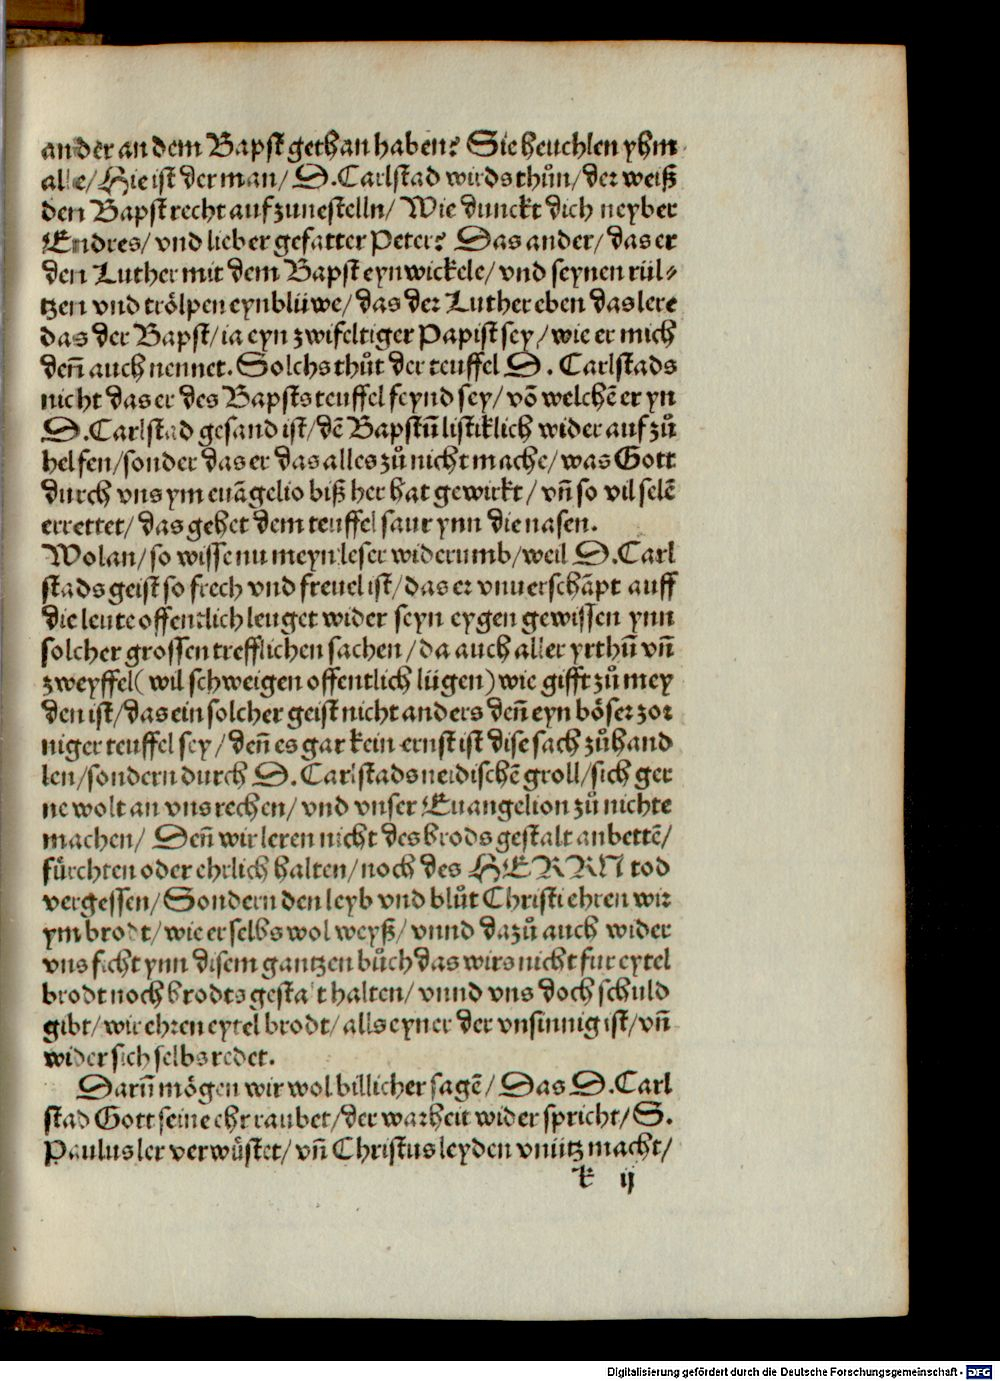 ander an dem Bapst gethan haben? Sie heuchlen yhm
alle/ Hie ist der man/ D. Carlstad wirds thůn/ der weiß
den Bapst recht auf zu nestelln/ Wie dunckt dich neyber
Endres/ vnd lieber gefatter Peter? Das ander/ das er
den Luther mit dem Bapst eynwickele/ vnd seynen rül⸗
tzen vnd trölpen eynblüwe/ das der Luther eben das lere
das der Bapst/ ia eyn zwifeltiger Papist sey/ wie er mich
deñ auch nennet. Solchs thůt der teuffel D. Carlstads
nicht das er des Bapsts teuffel feynd sey/ võ welchẽ er yn
D. Carlstad gesand ist/ dẽ Bapstũ listiklich wider auf zů
helfen/ sonder das er das alles zů nicht mache/ was Gott
durch vns ym euãgelio biß her hat gewirkt/ vñ so vil selẽ
errettet/ das gehet dem teuffel saur ynn die nasen.
Wolan/ so wisse nu meyn leser widerumb/ weil D. Carl
stads geist so frech vnd freuel ist/ das er vnuerschãpt auff
die leute offentlich leuget wider seyn eygen gewissen ynn
solcher grossen trefflichen sachen/ da auch aller yrthũ vñ
zweyffel (wil schweigen offentlich lügen) wie gifft zů mey
den ist/ das ein solcher geist nicht anders deñ eyn böser zor
niger teuffel sey/ deñ es gar kein ernst ist dise sach zů hand
len/ sondern durch D. Carlstads neidischẽ groll/ sich ger
ne wolt an vns rechen/ vnd vnser Euangelion zů nichte
machen/ Deñ wir leren nicht des brods gestalt anbettẽ/
fürchten oder ehrlich halten/ noch des HERRN tod
vergessen/ Sondern den leyb vnd blůt Christi ehren wir
ym brodt/ wie er selbs wol weyß/ vnnd dazů auch wider
vns ficht ynn disem gantzen bůch das wirs nicht fur eytel
brodt noch brodts gestalt halten/ vnnd vns doch schuld
gibt/ wir ehren eytel brodt/ alls eyner der vnsinnig ist/ vñ
wider sich selbs redet.
Darũ mögen wir wol billicher sagẽ/ Das D. Carl
stad Gott seine ehr raubet/ der warheit wider spricht/ S.
Paulus ler verwüstet/ vñ Christus leyden vnütz macht/
k ij
Digitalisierung gefördert durch die Deutsche Forschungsgemeinschaft - DFG